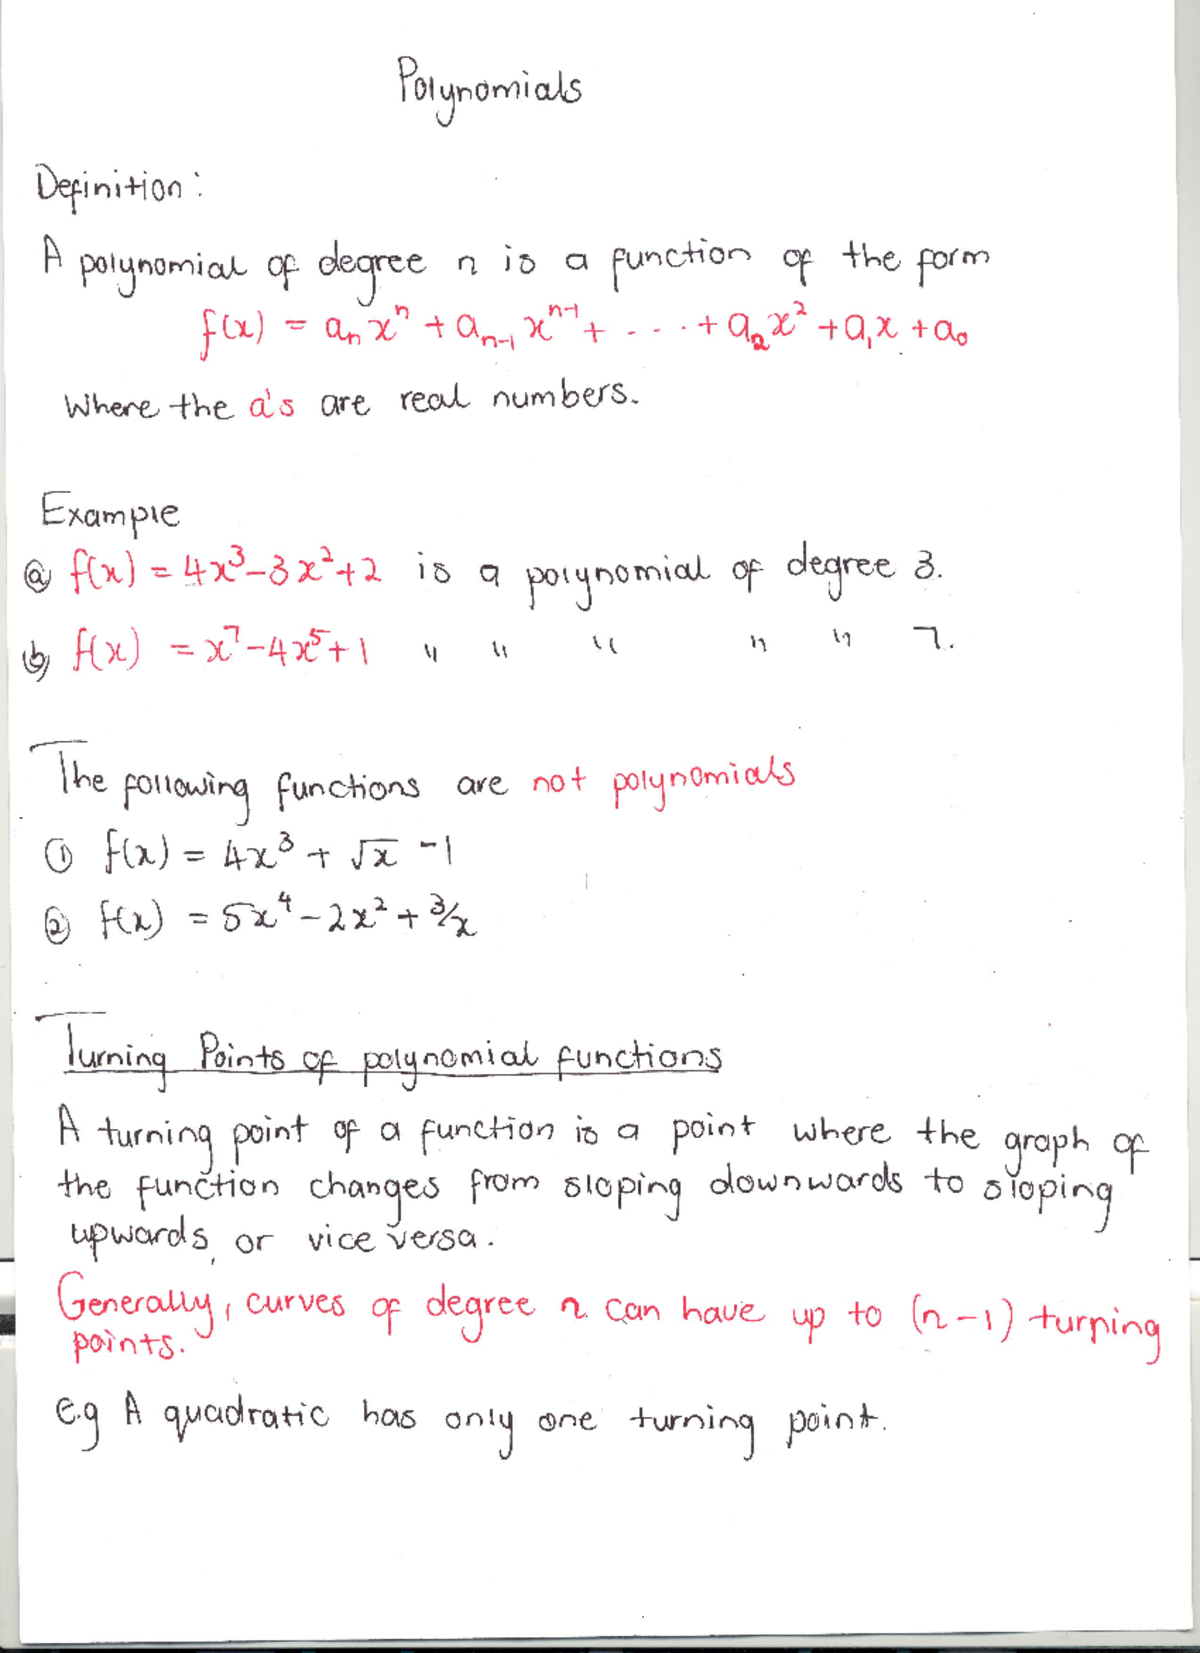 Polynomials
Definition:
A polynomial of degree n is a function of the form
f(x) = aₙxⁿ + aₙ₋₁xⁿ⁻¹ + ....+ a₂x² + a₁x + a₀
Where the a's are real numbers.
Example
ⓐ f(x) = 4x³-3x²+2 is a polynomial of degree 3.
ⓑ f(x) = x⁷-4x⁵+1 " " " " " 7.
The following functions are not polynomials
① f(x) = 4x³ + √x - 1
② f(x) = 5x⁴ - 2x² + 3/x
Turning Points of polynomial functions
A turning point of a function is a point where the graph of
the function changes from sloping downwards to sloping
upwards, or vice versa.
Generally, curves of degree n can have up to (n-1) turning
points.
e.g A quadratic has only one turning point.